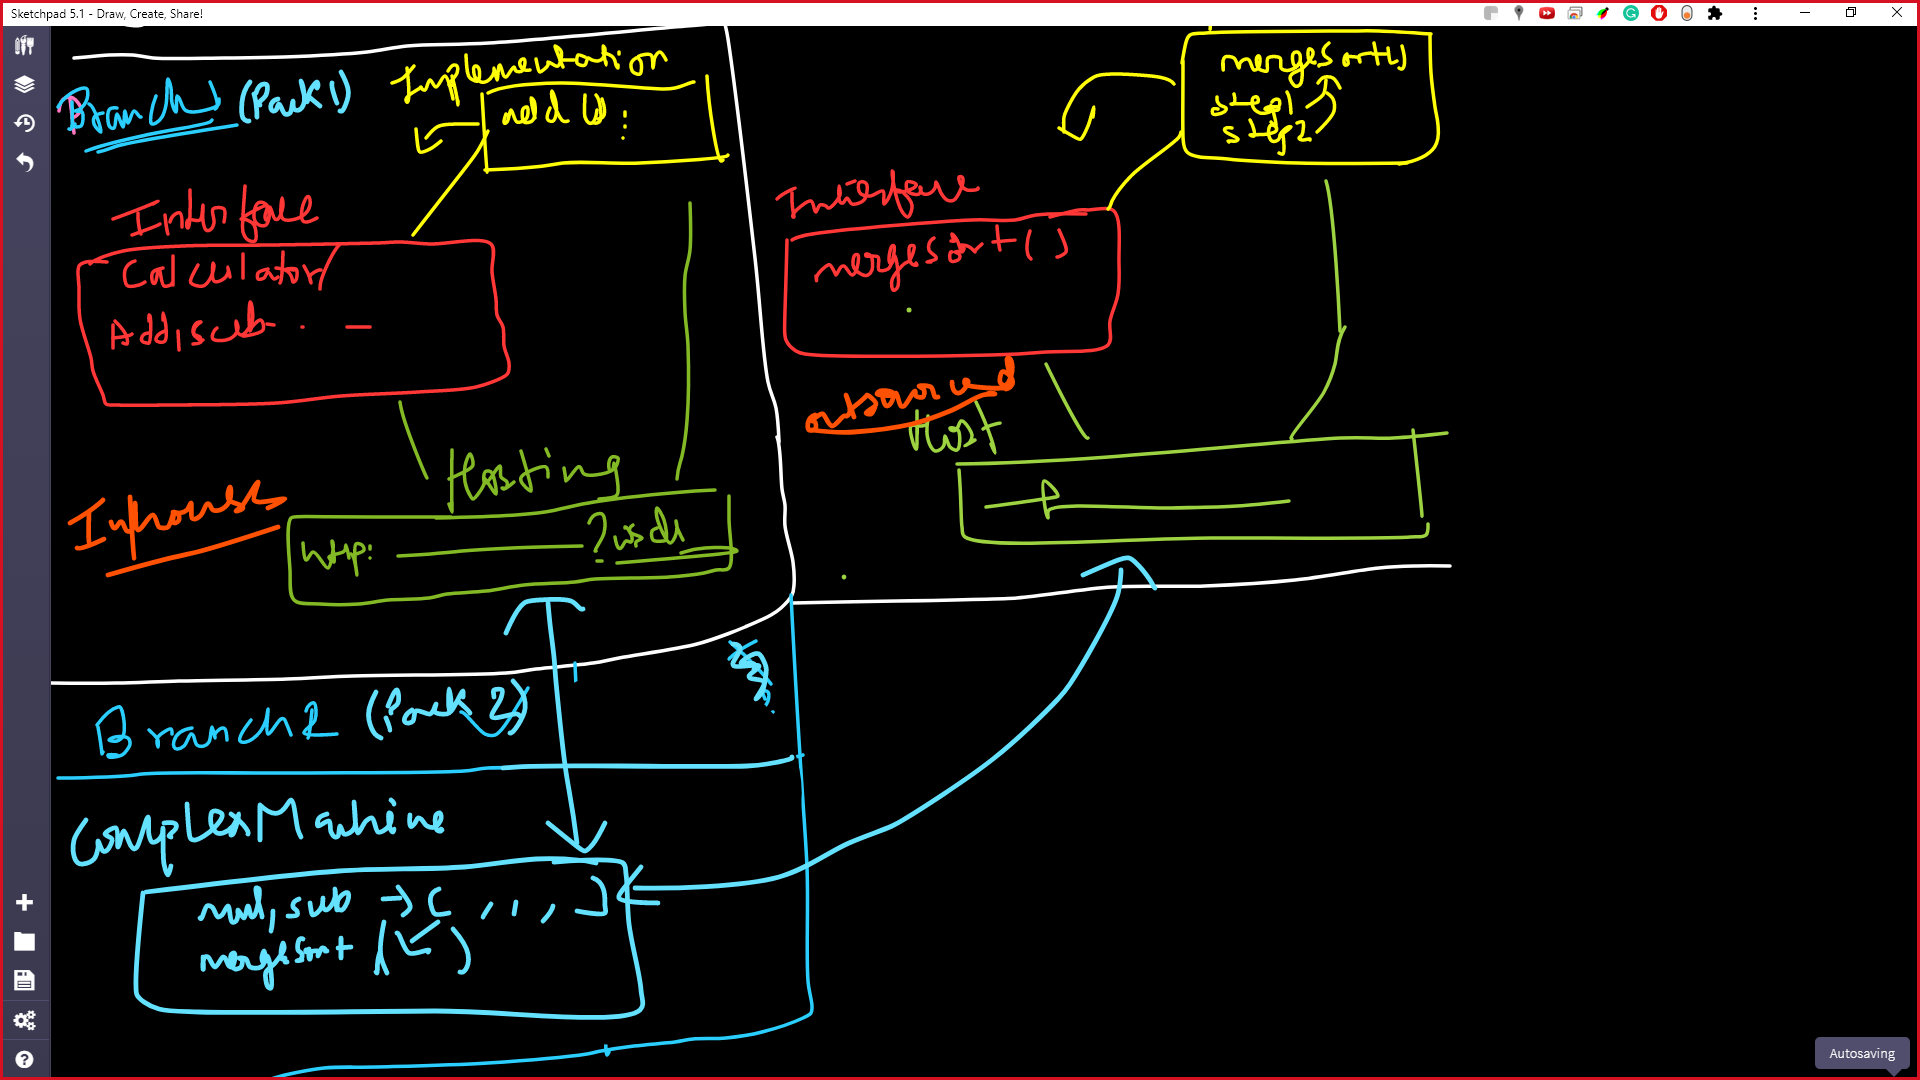 Sketchpad 5.1 - Draw, Create, Share!
Branch1 (Pack1)
Implementation
add ():
Interface
Calculator
Add, sub . -
Hosting
Inhouse
http: ?wsdl
mergesort()
step1
step2
Interface
mergesort()
outsourced
Host
Branch2 (Pack 2)
ComplexMachine
mul, sub -> [ , , , ]
mergesort ( )
Autosaving